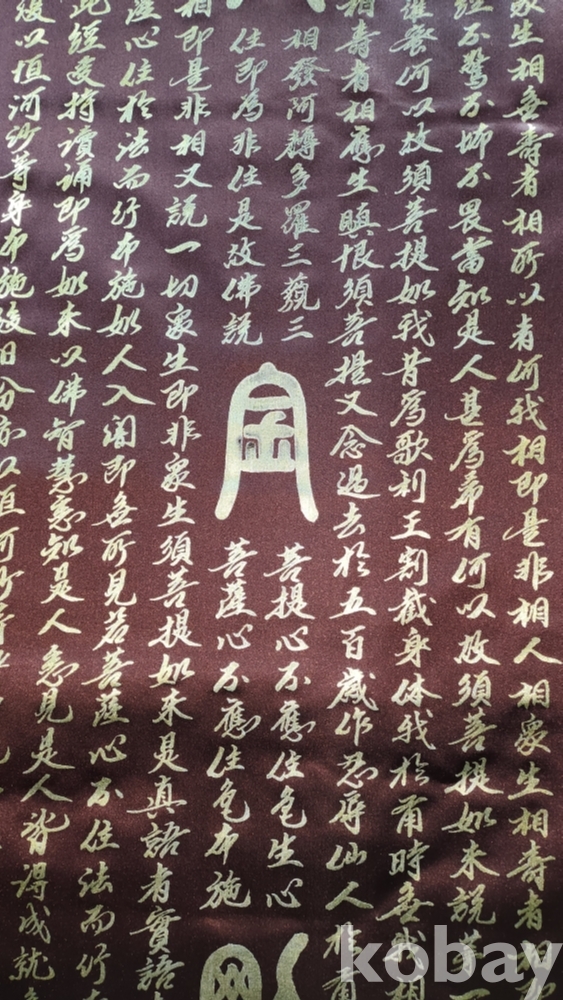 眾生相無壽者相所以者何我相即是非相人相眾生相壽者相
經不驚不怖不畏當知是人甚為希有何以故須菩提如來說第一
蜜何以故須菩提如我昔為歌利王割截身体我於爾時無我相
相壽者相應生瞋恨須菩提又念過去於五百歲作忍辱仙人
相發阿耨多羅三藐三
菩提心不應住色生心
住即為非住是故佛說
菩薩心不應住色布施
相即是非相又說一切眾生即非眾生須菩提如來是真語者實語
薩心住於法而行布施如人入闇即無所見若菩薩心不住法而行布
此經受持讀誦即為如來以佛智慧悉知是人悉見是人皆得成就
後以恒河沙等身布施後日分亦以恒河沙等
kobay